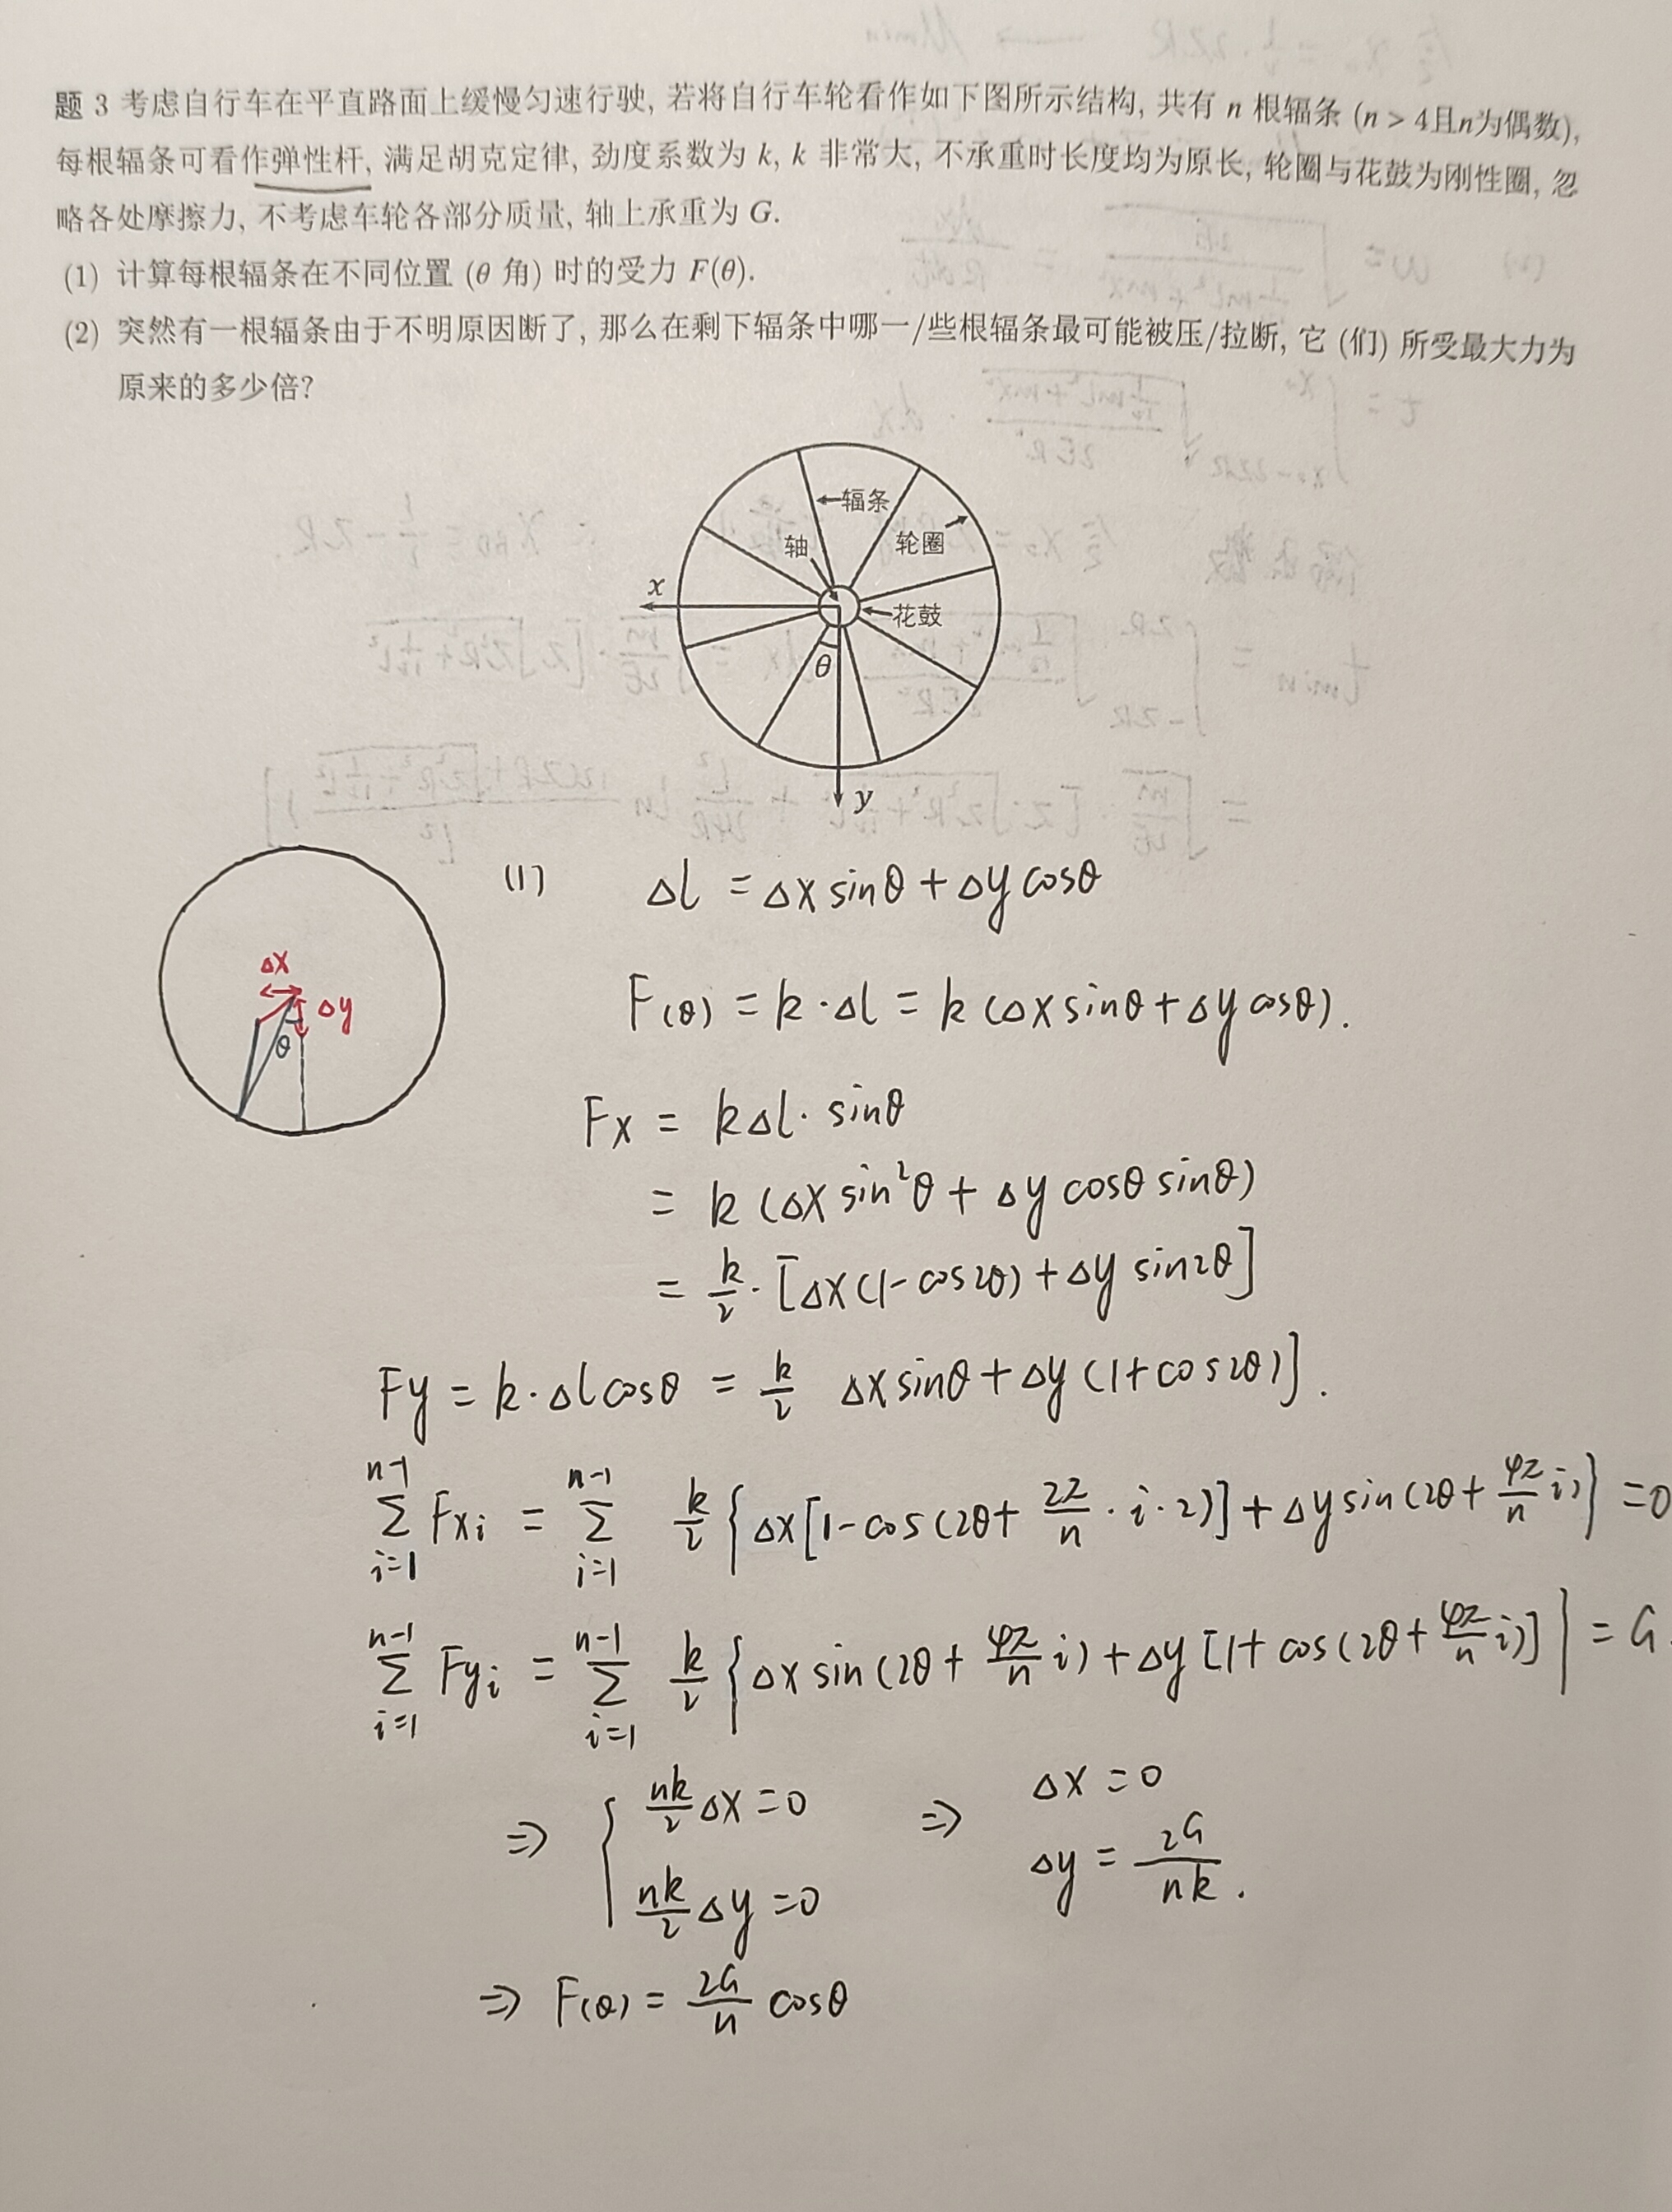 题 3 考虑自行车在平直路面上缓慢匀速行驶, 若将自行车轮看作如下图所示结构, 共有 n 根辐条 (n > 4且n为偶数),
每根辐条可看作弹性杆, 满足胡克定律, 劲度系数为 k, k 非常大, 不承重时长度均为原长, 轮圈与花鼓为刚性圈, 忽
略各处摩擦力, 不考虑车轮各部分质量, 轴上承重为 G.
(1) 计算每根辐条在不同位置 (θ 角) 时的受力 F(θ).
(2) 突然有一根辐条由于不明原因断了, 那么在剩下辐条中哪一/些根辐条最可能被压/拉断, 它 (们) 所受最大力为
原来的多少倍?
辐条
轴
轮圈
x
花鼓
θ
y
Δx
Δy
θ
(1) Δl = Δx sinθ + Δy cosθ
F(θ) = k·Δl = k (Δx sinθ + Δy cosθ).
Fx = kΔl· sinθ
= k (Δx sin²θ + Δy cosθ sinθ)
= k/2 · [Δx (1-cos2θ) + Δy sin2θ]
Fy = k·Δl cosθ = k/2 Δx sinθ + Δy (1+cos2θ)].
n-1 ∑ i=1 Fxi = n-1 ∑ i=1 k/2 {Δx [1-cos(2θ + 2π/n · i · 2)] + Δy sin(2θ + 4π/n i)} = 0
n-1 ∑ i=1 Fyi = n-1 ∑ i=1 k/2 {Δx sin(2θ + 4π/n i) + Δy [1+cos(2θ + 4π/n i)]} = G.
⇒ { nk/2 Δx = 0 ⇒ Δx = 0
nk/2 Δy = 0 Δy = 2G/nk.
⇒ F(θ) = 2G/n cosθ